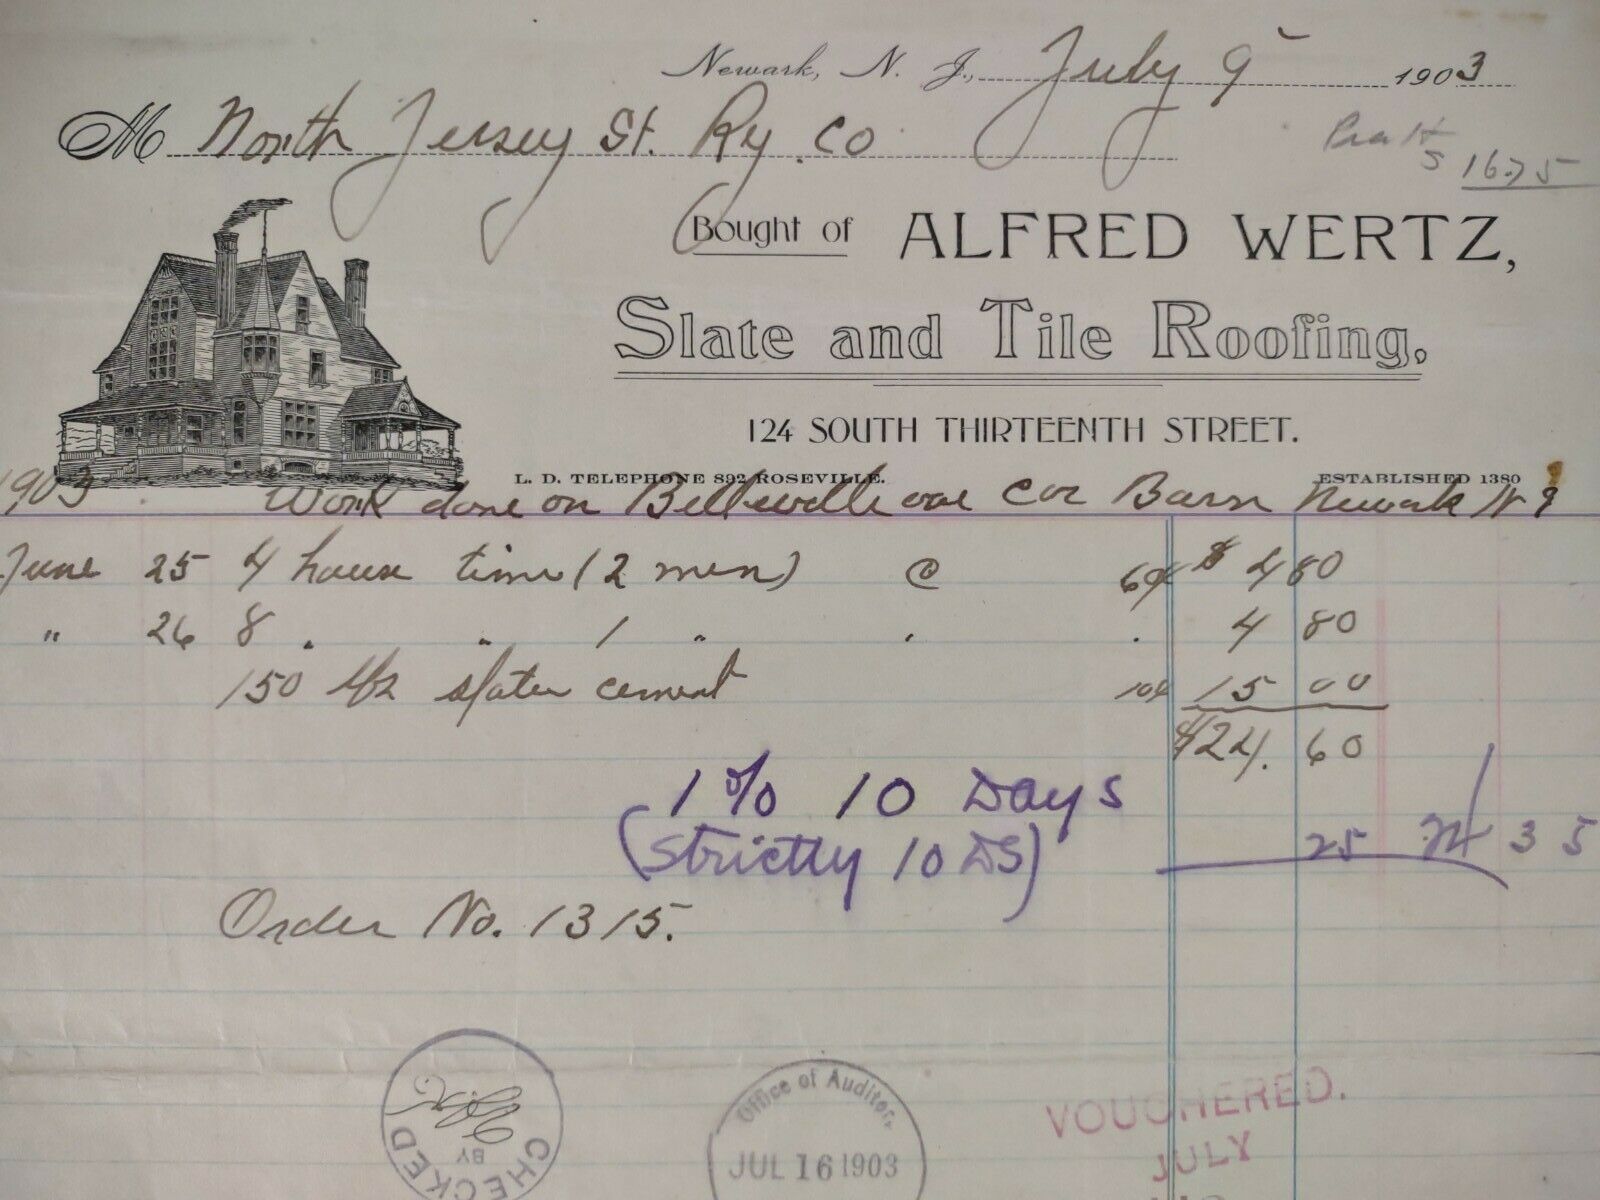 Newark, N. J., July 9 1903
M North Jersey St. Ry. Co
16.75
Bought of ALFRED WERTZ,
Slate and Tile Roofing.
124 SOUTH THIRTEENTH STREET.
L. D. TELEPHONE 892 ROSEVILLE. ESTABLISHED 1880
1903 Work done on Belleville ave Car Barn Newark N J
June 25 4 hours time (2 men) @ 60¢ $ 4 80
" 26 8 " " 1 " " " 4 80
150 lbs slater cement 10¢ 15 00
$24. 60
1% 10 Days
25 24 35
(Strictly 10 DS)
Order No. 1315.
CHECKED BY
Office of Auditor,
JUL 16 1903
VOUCHERED.
JULY